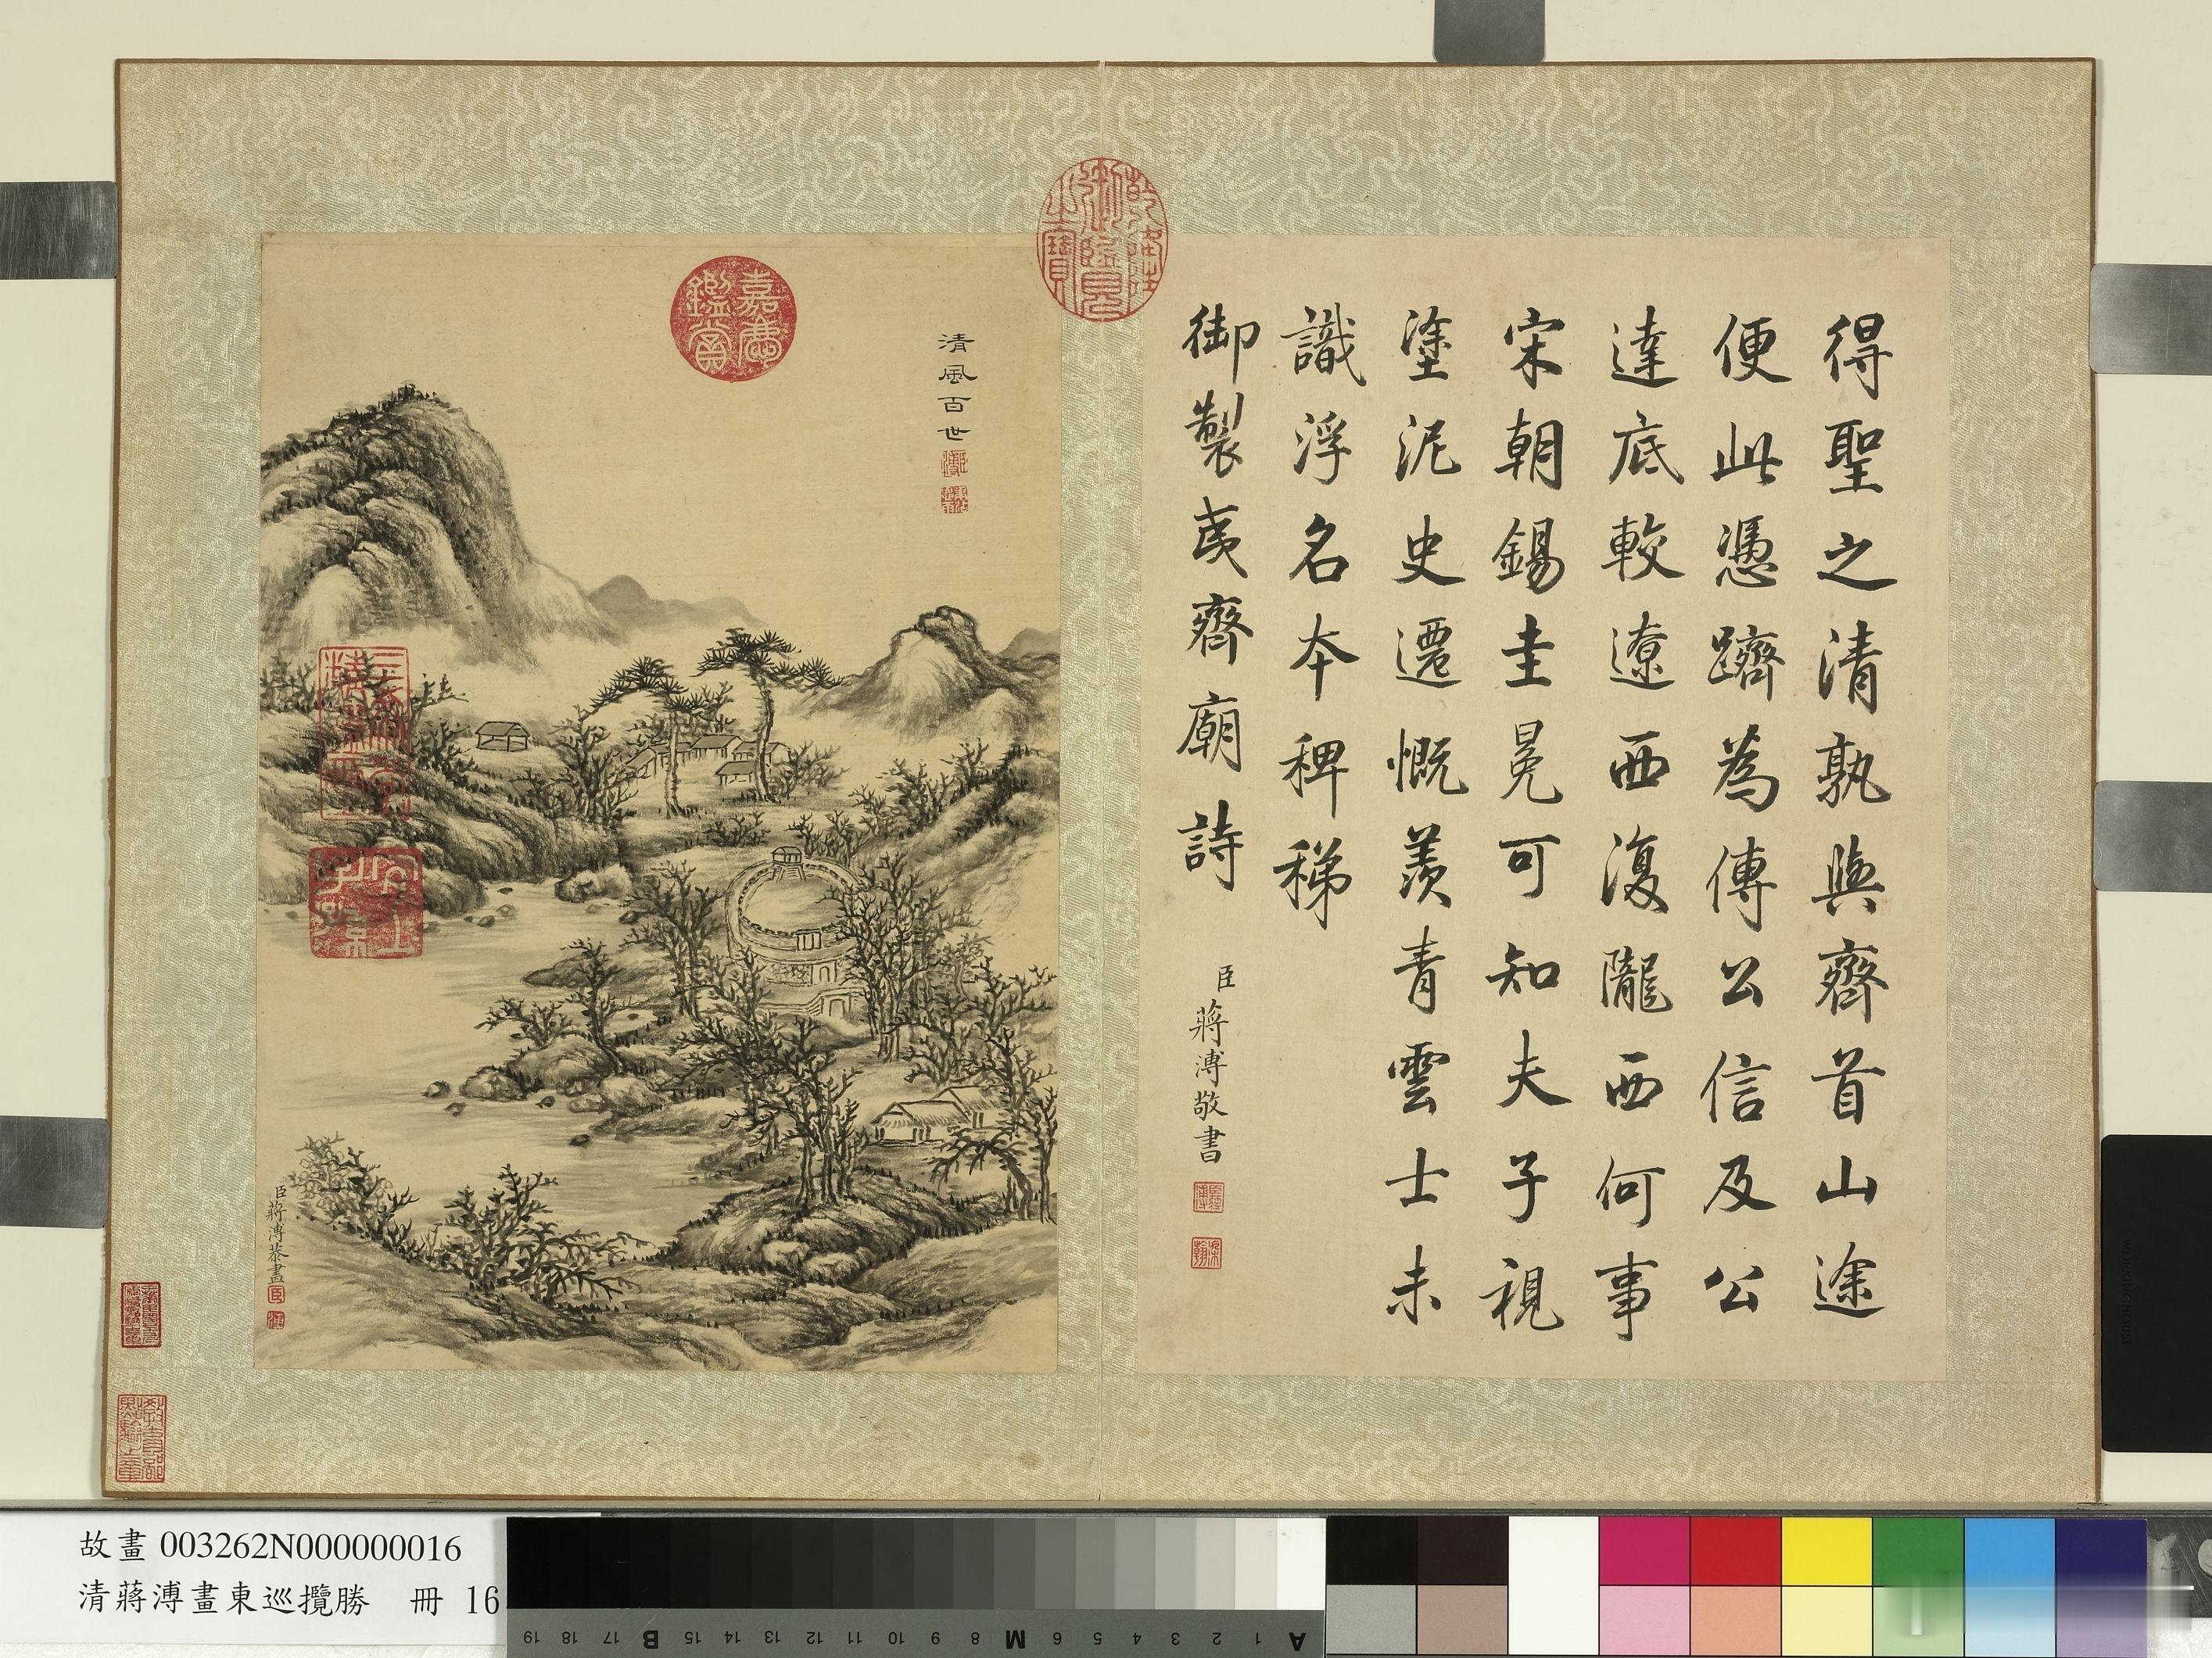 得聖之清孰與齊首山途
便此憑躋為傳公信及公
達底較遼西復隴西何事
宋朝錫圭冕可知夫子視
塗泥史遷慨羨青雲士未
識浮名本稗稊
御製夷齊廟詩
臣蔣溥敬書
乾隆御覽之寶
清風百世
嘉慶鑑賞
三希堂精鑑璽
宜子孫
臣蔣溥恭畫
故畫 003262N000000016
清蔣溥畫東巡攬勝 冊 16
19 18 17 B 15 14 13 12 11 10 9 8 M 6 5 4 3 2 1 A